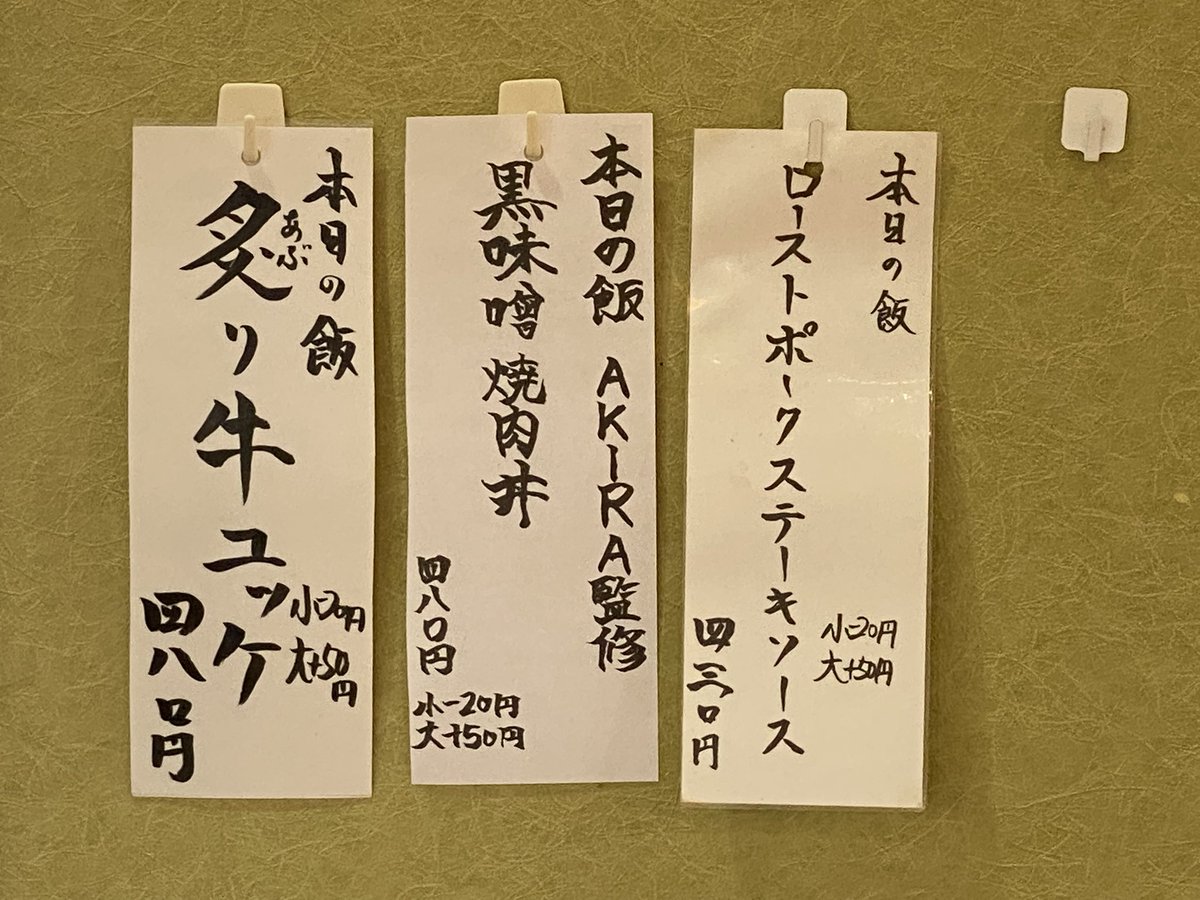 本日の飯
あぶ
炙り牛ユッケ
小-20円
大+50円
四八〇円
本日の飯 AKIRA監修
黒味噌焼肉丼
四八〇円
小-20円
大+50円
本日の飯
ローストポークステーキソース
小-20円
大+50円
四三〇円